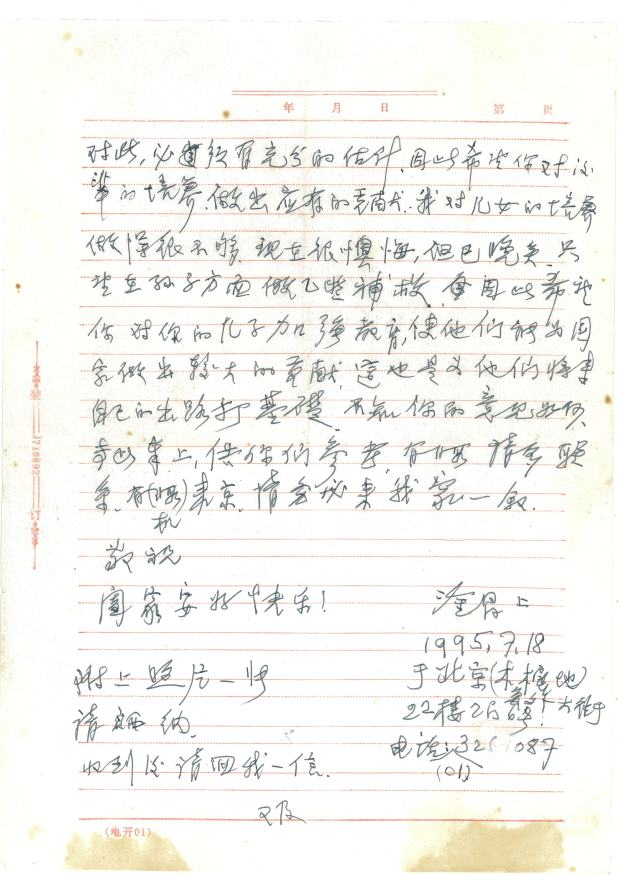 年 月 日 第 页
对此，必须有充分的估计，因此希望你对后
辈的培养，做出应有的贡献。我对儿女的培养
做得很不够，现在很懊悔，但已晚矣。只
望在孙子方面做些补救，因此希望
你对你的儿子加强教育，使他们能为国
家做出较大的贡献，这也是为他们将来
自己的出路打基礎。不知你的意见如何，
寄此上，供你们参考，有暇请多联
系，有机(暇)来京，请来我家一叙。
敬祝
阖家安好快乐！
上
1995.7.18
附上照片一张
于北京(木樨地)
请
22楼
收到后请回我一信。
电话：
(01)
又及
(电开01)
装
订